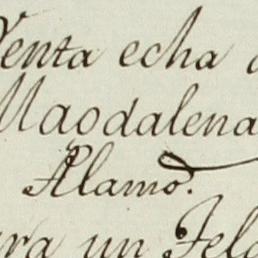 Venta echa a
Magdalena
Alamo.
ara un Feld